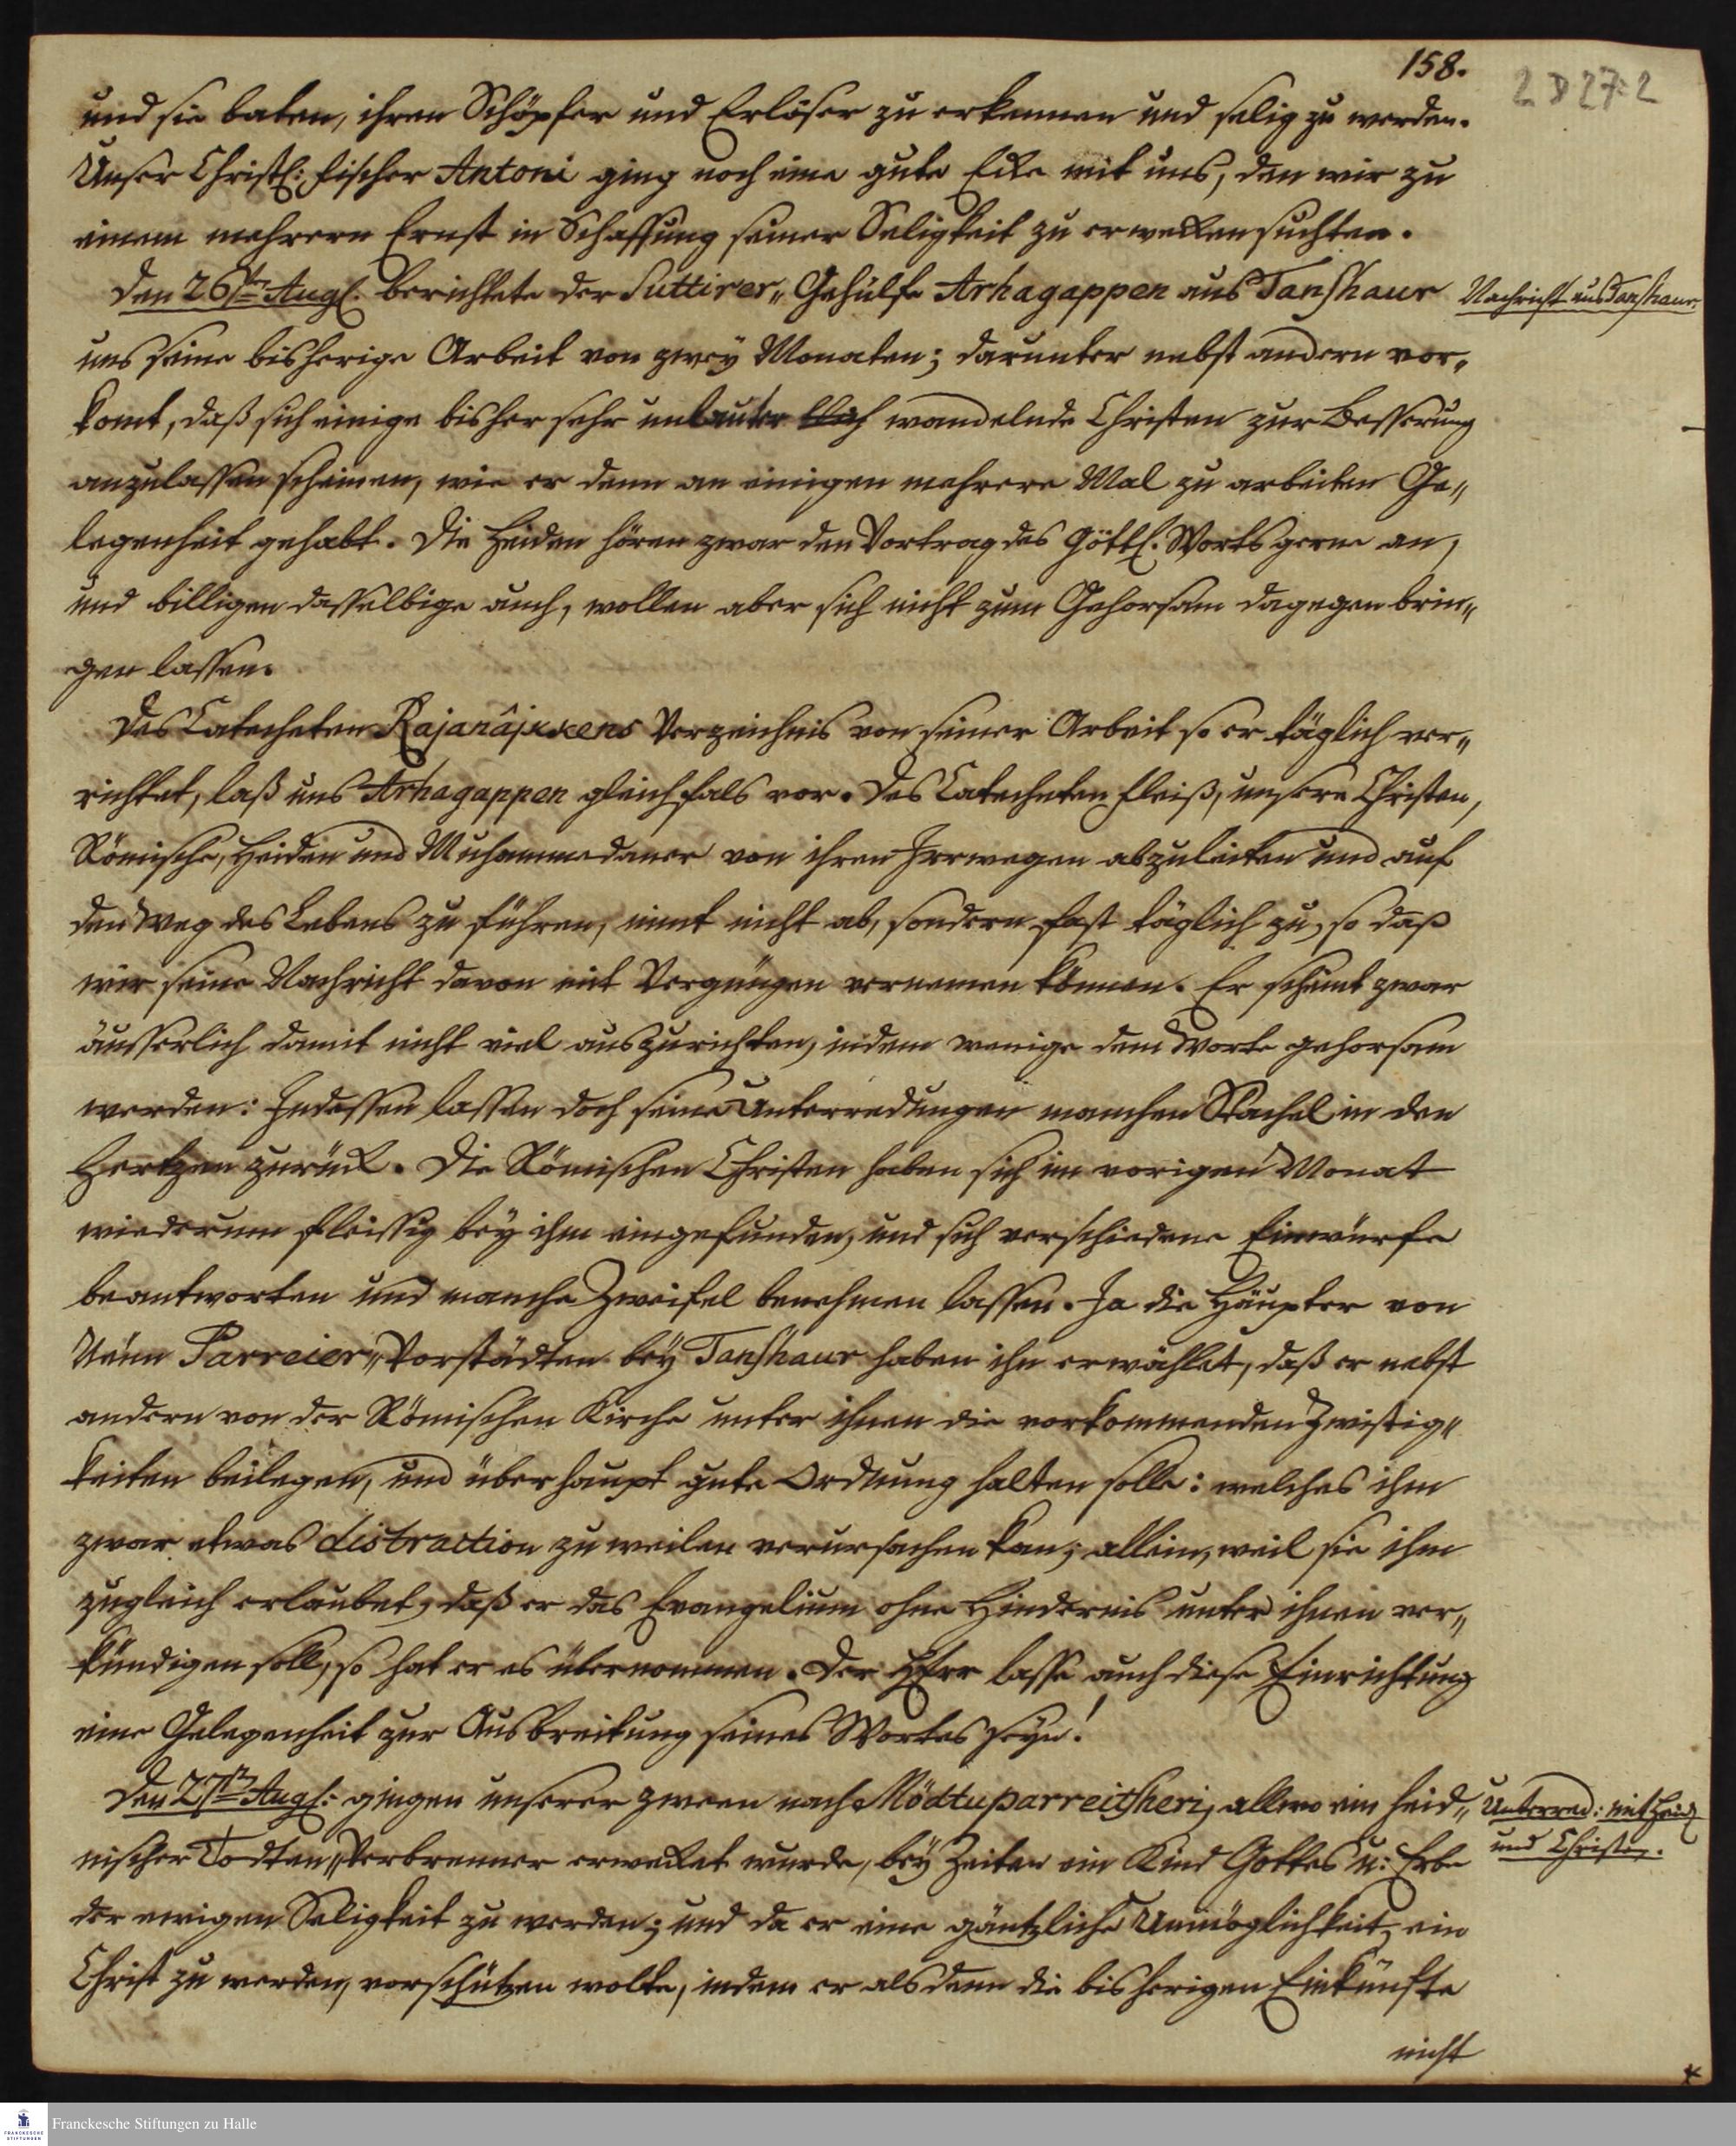 158.
2 D 27:2
und sie baten, ihren Schöpfer und Erlöser zu erkennen und selig zu werden.
Unser Christl: Fischer Antoni ging noch eine gute Ecke mit uns, den wir zu
einem mehrern Ernst in Schaffung seiner Seligkeit zu erwecken suchten.
Den 26ten Augl. berichtete der Suttirer„ Gehülfe Arhagappen aus Tanshaur
Nachricht aus Tanshaur.
uns seine bisherige Arbeit von zwey Monaten; darunter nebst andern vor„
komt, daß sich einige bisher sehr unlauter wandelnde Christen zur Besserung
anzulassen scheinen, wie er denn an einigen mehrere Mal zu arbeiten Ge„
legenheit gehabt. Die Heiden hören zwar den Vortrag des Göttl. Worts gerne an,
und billigen dasselbige auch, wollen aber sich nicht zum Gehorsam dagegen brin„
gen lassen.
Des Catecheten Rajanâjkkens Verzeichnis von seiner Arbeit so er täglich ver„
richtet, laß uns Arhagappen gleichfals vor. Des Catecheten Fleiß, unsere Christen,
Römische, Heiden und Muhammedaner von ihren Irrwegen abzuleiten und auf
den Weg des Lebens zu führen, nimt nicht ab, sondern fast täglich zu, so daß
wir seine Nachricht davon mit Vergnügen vernemen können. Er scheint zwar
äusserlich damit nicht viel auszurichten, indem wenige dem Worte gehorsam
werden: Indessen lassen doch seine Unterredungen manchen Stachel in den
Hertzen zurück. Die Römischen Christen haben sich im vorigen Monat
wiederum fleissig bey ihm eingefunden, und sich verschiedene Einwürfe
beantworten und manche Zweifel benehmen lassen. Ja die Häupter von
Neun Parreier„ Vorstädten bey Tanshaur haben ihn erwählet, daß er nebst
andern von der Römischen Kirche unter ihnen die vorkommenden Zwistig„
keiten beilegen, und überhaupt gute Ordnung halten solle: welches ihm
zwar etwas distraction zuweilen verursachen kan; allein, weil sie ihm
zugleich erlaubet, daß er das Evangelium ohne Hindernis unter ihnen ver„
kündigen soll, so hat er es übernommen. Der HErr lasse auch diese Einrichtung
eine Gelegenheit zur Ausbreitung seines Wortes seyn!
Den 27ten Augl: gingen unserer zween nach Mödtuparreitsheri, allwo ein heid„
Unterred: mit Heid
und Christen.
nischer Todten„Verbrenner erwecket wurde, bey Zeiten ein Kind Gottes u: Erbe
der ewigen Seligkeit zu werden; und da er eine gäntzliche Unmöglichkeit, ein
Christ zu werden, vorschützen wolte, indem er alsdenn die bisherigen Einkünfte
nicht
Franckesche Stiftungen zu Halle
FRANCKESCHE
STIFTUNGEN